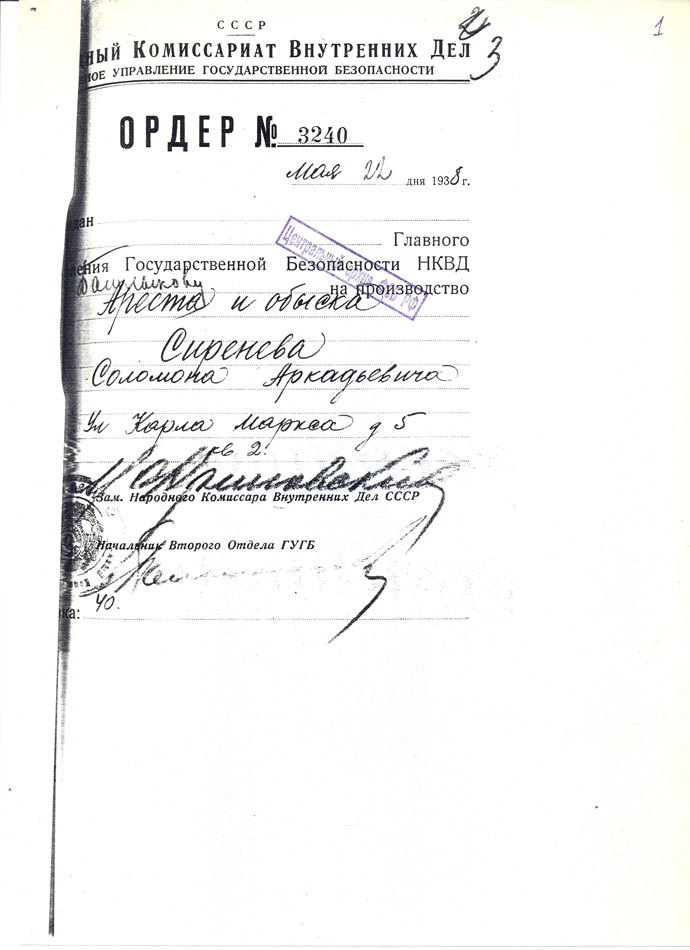 1
3
СССР
ный Комиссариат Внутренних Дел
ное управление государственной безопасности
ОРДЕР № 3240
Мая 22 дня 1938 г.
дан
Главного
ения Государственной Безопасности НКВД
на производство
Ареста и обыска
Центральный архив ФСБ РФ
Сиренева
Соломона Аркадьевича
Ул Карла Маркса д 5
кв 2.
Зам. Народного Комиссара Внутренних Дел СССР
Начальник Второго Отдела ГУГБ
ка: 40.